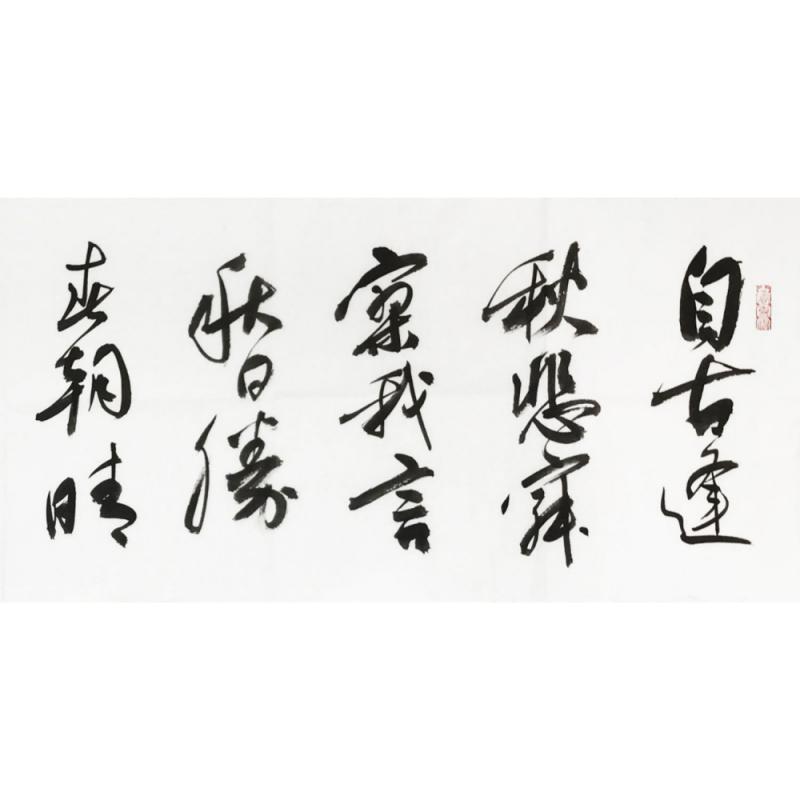 自古逢
秋悲寂
寥我言
秋日勝
春朝晴